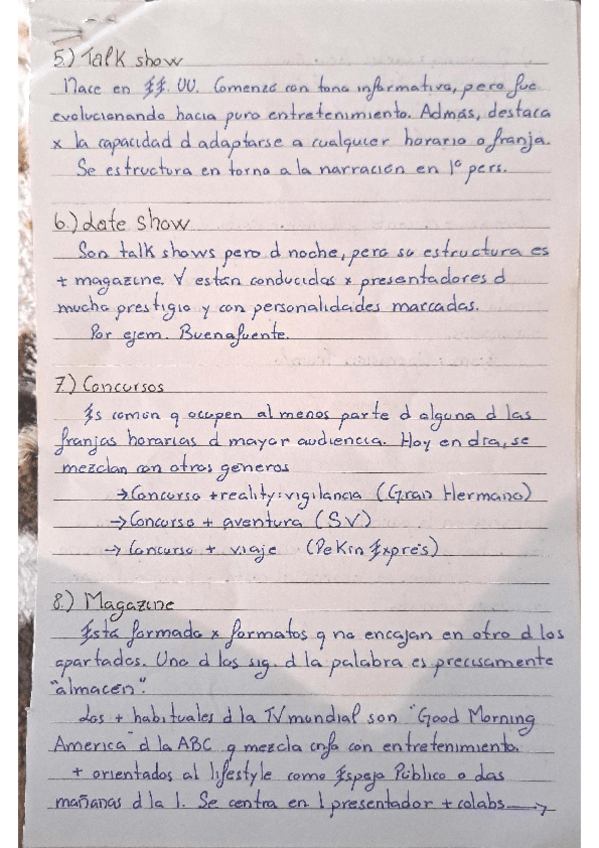 5.) Talk show
Nace en EE.UU. Comenzó con tono informativo, pero fue
evolucionando hacia puro entretenimiento. Admás, destaca
x la capacidad d adaptarse a cualquier horario o franja.
Se estructura en torno a la narración en 1º pers.
6.) Late show
Son talk shows pero d noche, pero su estructura es
+ magazine. Y están conducidos x presentadores d
mucho prestigio y con personalidades marcadas.
Por ejem. Buenafuente.
7.) Concursos
Es común q ocupen al menos parte d alguna d las
franjas horarias d mayor audiencia. Hoy en día, se
mezclan con otros géneros
→ Concurso + reality: vigilancia (Gran Hermano)
→ Concurso + aventura (SV)
→ Concurso + viaje (Pekin Exprés)
8.) Magazine
Está formado x formatos q no encajan en otro d los
apartados. Uno d los sig. d la palabra es precisamente
"almacén".
Los + habituales d la TV mundial son "Good Morning
America" d la ABC q mezcla info con entretenimiento.
+ orientados al lifestyle como Espejo Público o Las
mañanas d la 1. Se centra en 1 presentador + colabs →